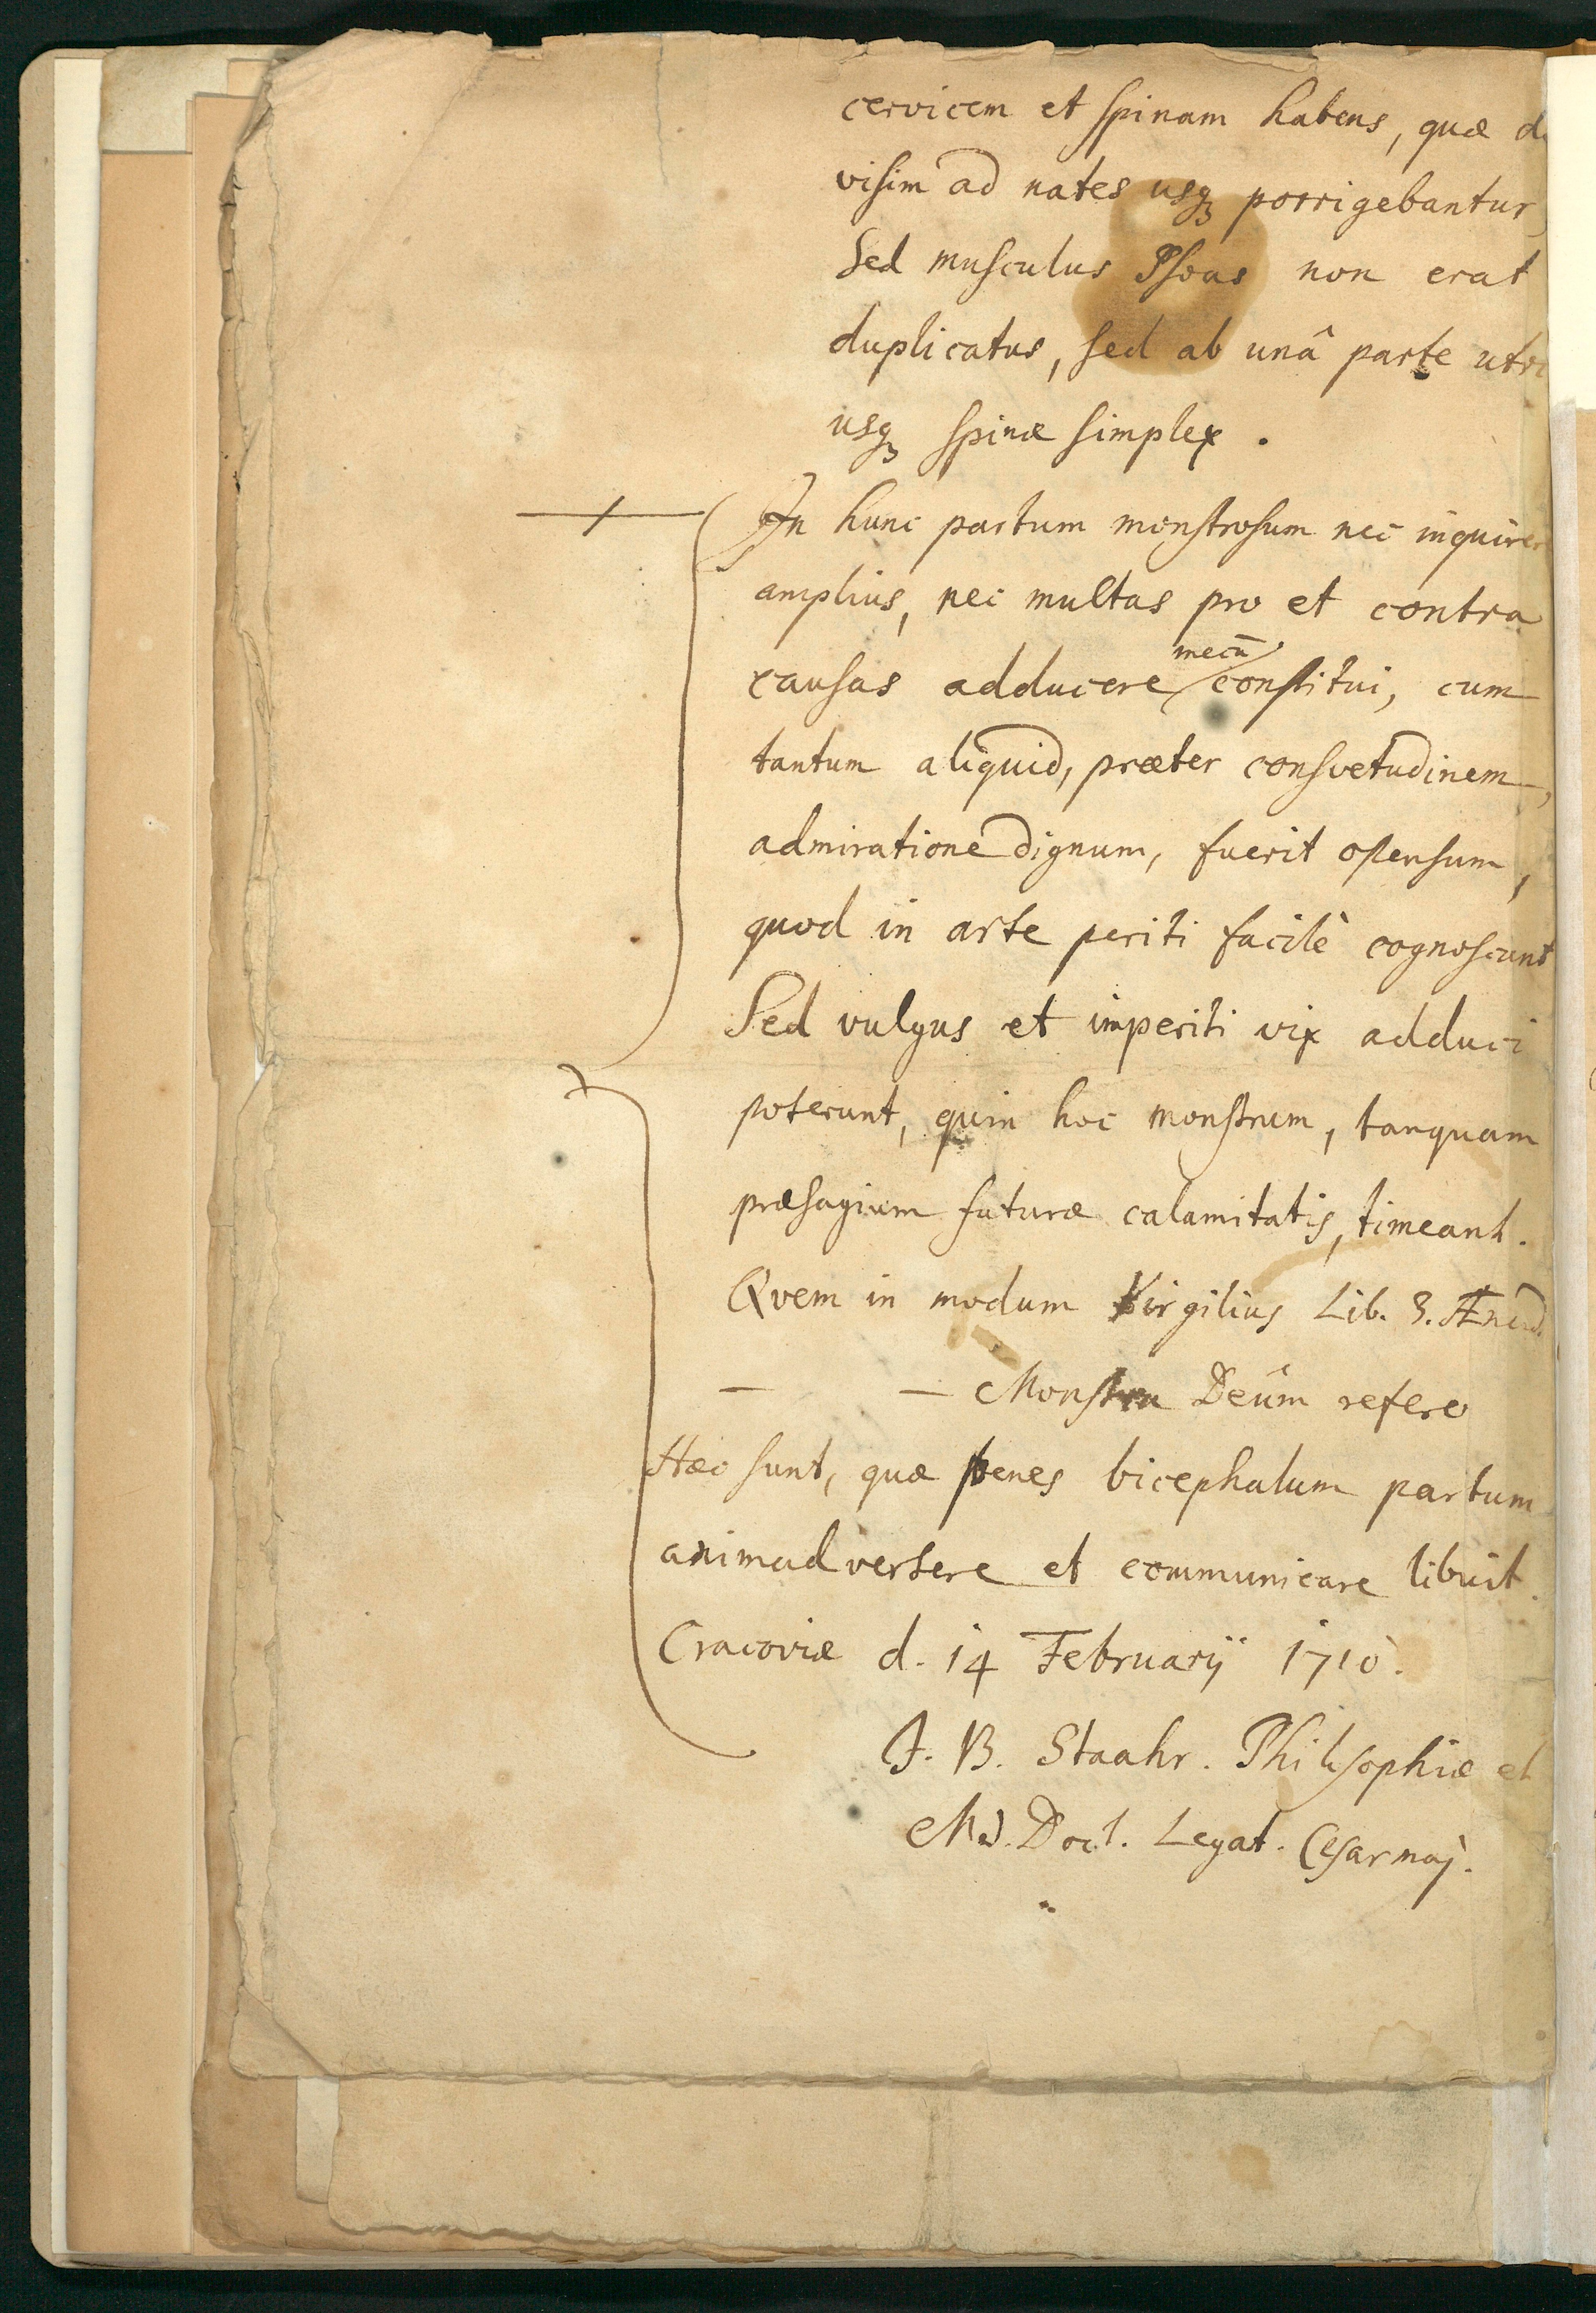 cervicem et spinam habens, quæ di
visim ad nates usq3 porrigebantur,
Sed musculus Psoas non erat
duplicatus, sed ab unâ parte utri
usq3 spinæ simplex.
In hunc partum monstrosum nec inquirere
amplius, nec multas pro et contra
causas adducere mecū constitui, cum
tantum aliquid, præter consvetudinem,
admiratione dignum, fuerit ostensum,
quod in arte periti facilè cognoscunt
Sed vulgus et imperiti vix adduci
poterunt, quin hoc monstrum, tanquam
præsagium futuræ calamitatis, timeant.
Qvem in modum Virgilius Lib. 3. Æneid.
— — Monstra Deûm refero
Hæc sunt, quæ penes bicephalum partum
animadvertere et communicare libuit.
Cracoviæ d. 14 Februarij 1710.
J. B. Staahr. Philosophiæ et
Md. Doct. Legat. Cesar maj.